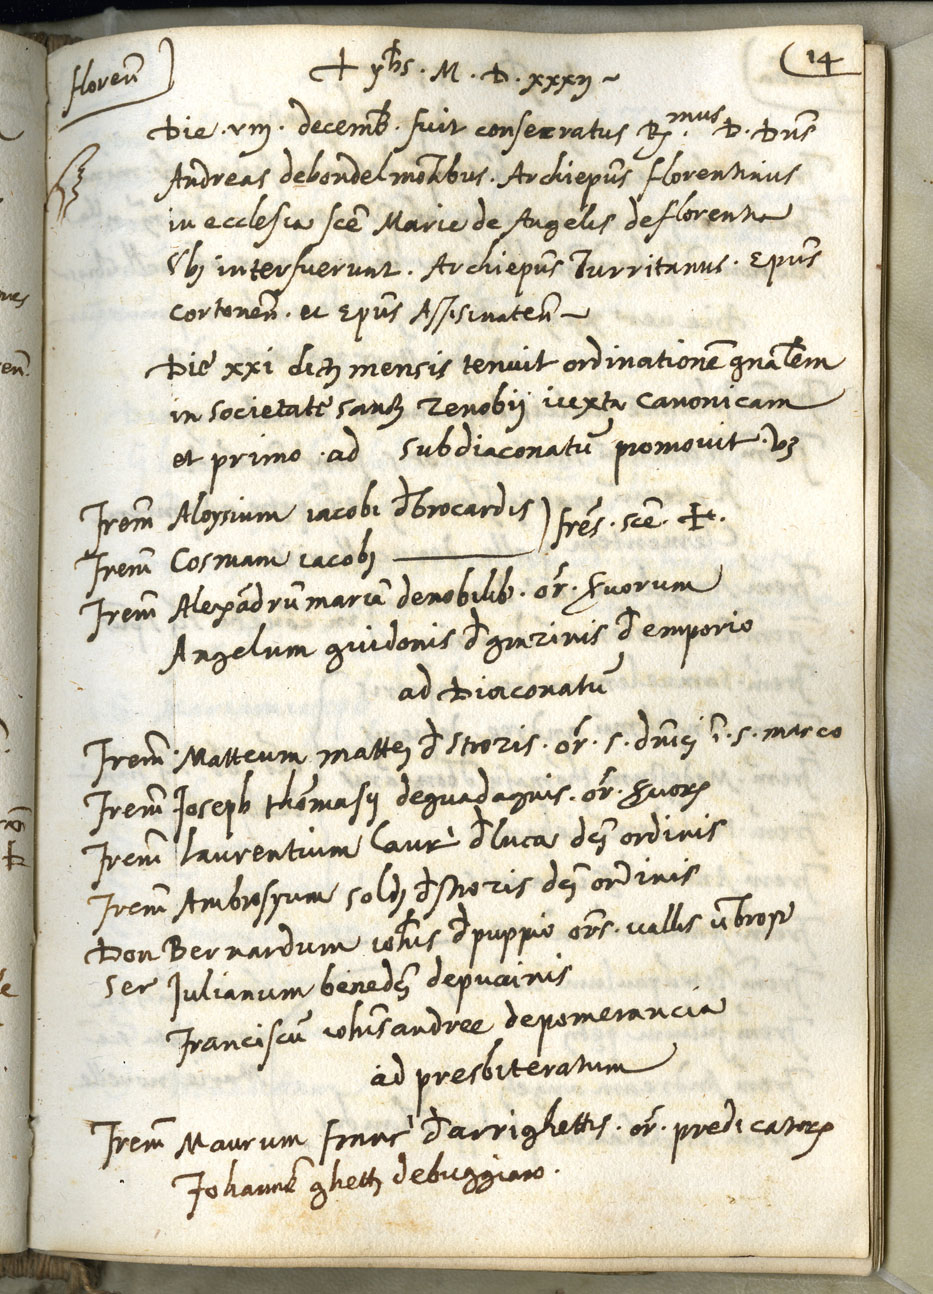 floren̄
14
+ yh̄s · M · D · xxxij ~
Die · viij · decemb̄ · fuit consecratus R.mus D · Dn̄s
Andreas debondelmōtibus · Archiepūs florentinus
in ecclesia scē Marie de Angelis deflorentia
Vbi interfuerunt · Archiepūs Turritanus · Epūs
cortonen̄ · et Epūs Assisinaten̄ ~
Die xxi dicti mensis tenuit ordinationē gnālem
in societate sancti zenobij iuxta canonicam
et primo · ad subdiaconatū promovit · vz
frem̄ Aloysium iacobi đbrocardis ) frēs · scē · + ·
frem̄ Cosmam iacobi
frem̄ Alexādrū mariā denobilib · or̄ · suorum
Angelum guidonis đ grazinis đ emporio
ad Diaconatū
frem̄ · Matteum mattei đ strozis · or̄ · s · dn̄ici ī · s · marco
frem̄ Joseph thōmasij deguadagnis · or̄ · suoꝝ
frem̄ laurentium laur̄ đ luca dc̄i ordinis
frem̄ Ambrosyum soldi đ strozis dc̄i ordinis
Don Bernardum ioh̄is đ puppio ors̄ · uallis ūbrose
ser Julianum benedc̄i depucinis
Franciscū ioh̄is andree depomerancia
ad presbiteratum
frem̄ Maurum franc̄ đ arrighettis · or̄ · predicatoꝝ
Johannē ghetti debuggiano ·